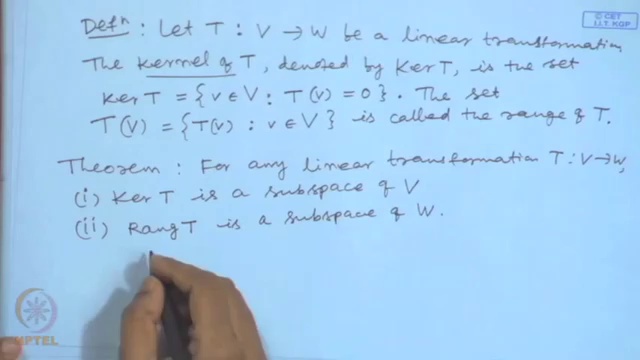 © CET
I.I.T. KGP
Defⁿ : Let T : V → W be a linear transformation
The kernel of T, denoted by Ker T, is the set
Ker T = {v ∈ V : T(v) = 0}. The set
T(V) = {T(v) : v ∈ V} is called the range of T.
Theorem : For any linear transformation T : V → W,
(i) Ker T is a subspace of V
(ii) Rang T is a subspace of W.
NPTEL